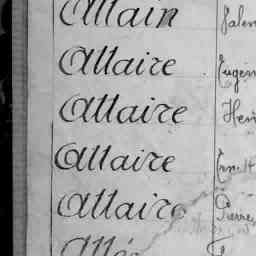 Allain Valen
Allaire Eugèn
Allaire Hen
Allaire Ernest
Allaire Pierre
Allé